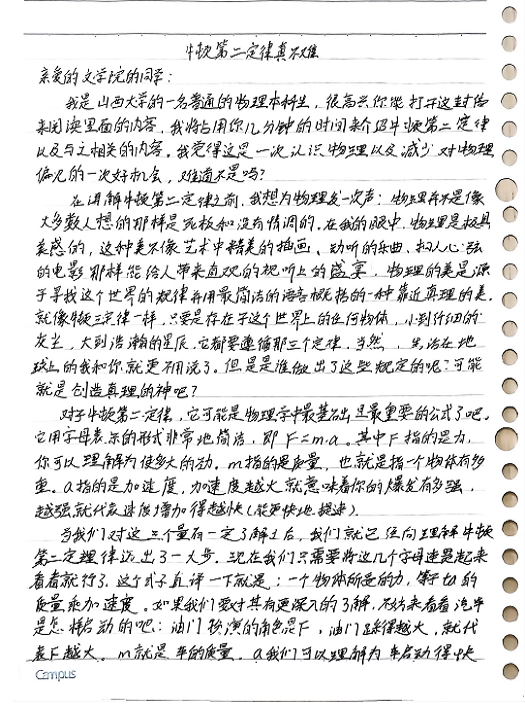 牛顿第二定律真不难
亲爱的文学院的同学：
我是山西大学的一名普通的物理本科生，很高兴你能打开这封信
来阅读里面的内容，我将占用你几分钟的时间来介绍牛顿第二定律
以及与之相关的内容。我觉得这是一次认识物理以及减少对物理
偏见的一次好机会，难道不是吗？
在讲解牛顿第二定律之前，我想为物理发一次声：物理并不是像
大多数人想的那样是死板和没有情调的。在我的眼中，物理是极具
美感的，这种美不像艺术中精美的插画、动听的乐曲、扣人心弦
的电影那样能给人带来直观的视听上的盛宴，物理的美是源
于寻找这个世界的规律并用最简洁的语言概括的一种靠近真理的美。
就像牛顿三定律一样，只要是存在于这个世界上的任何物体，小到仔细的
灰尘，大到浩瀚的星辰，它都要遵循那三个定律，当然，生活在地
球上的我和你就更不用说了。但是是谁做出了这些规定的呢？可能
就是创造真理的神吧？
对于牛顿第二定律，它可能是物理学中最基础也是最重要的公式了吧。
它用字母表示的形式非常地简洁，即F=m·a。其中F指的是力，
你可以理解为使多大的劲。m指的是质量，也就是指一个物体有多
重。a指的是加速度，加速度越大就意味着你的爆发有多强，
越强就代表速度增加得越快(能更快地提速)。
当我们对这三个量有一定了解之后，我们就已经向理解牛顿
第二定理律迈出了一大步。现在我们只需要将这几个字母连起来
看看就行了，这个式子直译一下就是：一个物体所受的力，等于它的
质量乘加速度。如果我们要对其有更深入的了解，不妨来看看汽车
是怎样启动的吧：油门扮演的角色是F，油门踩得越大，就代
表F越大。m就是车的质量。a我们可以理解为车启动得快
Campus